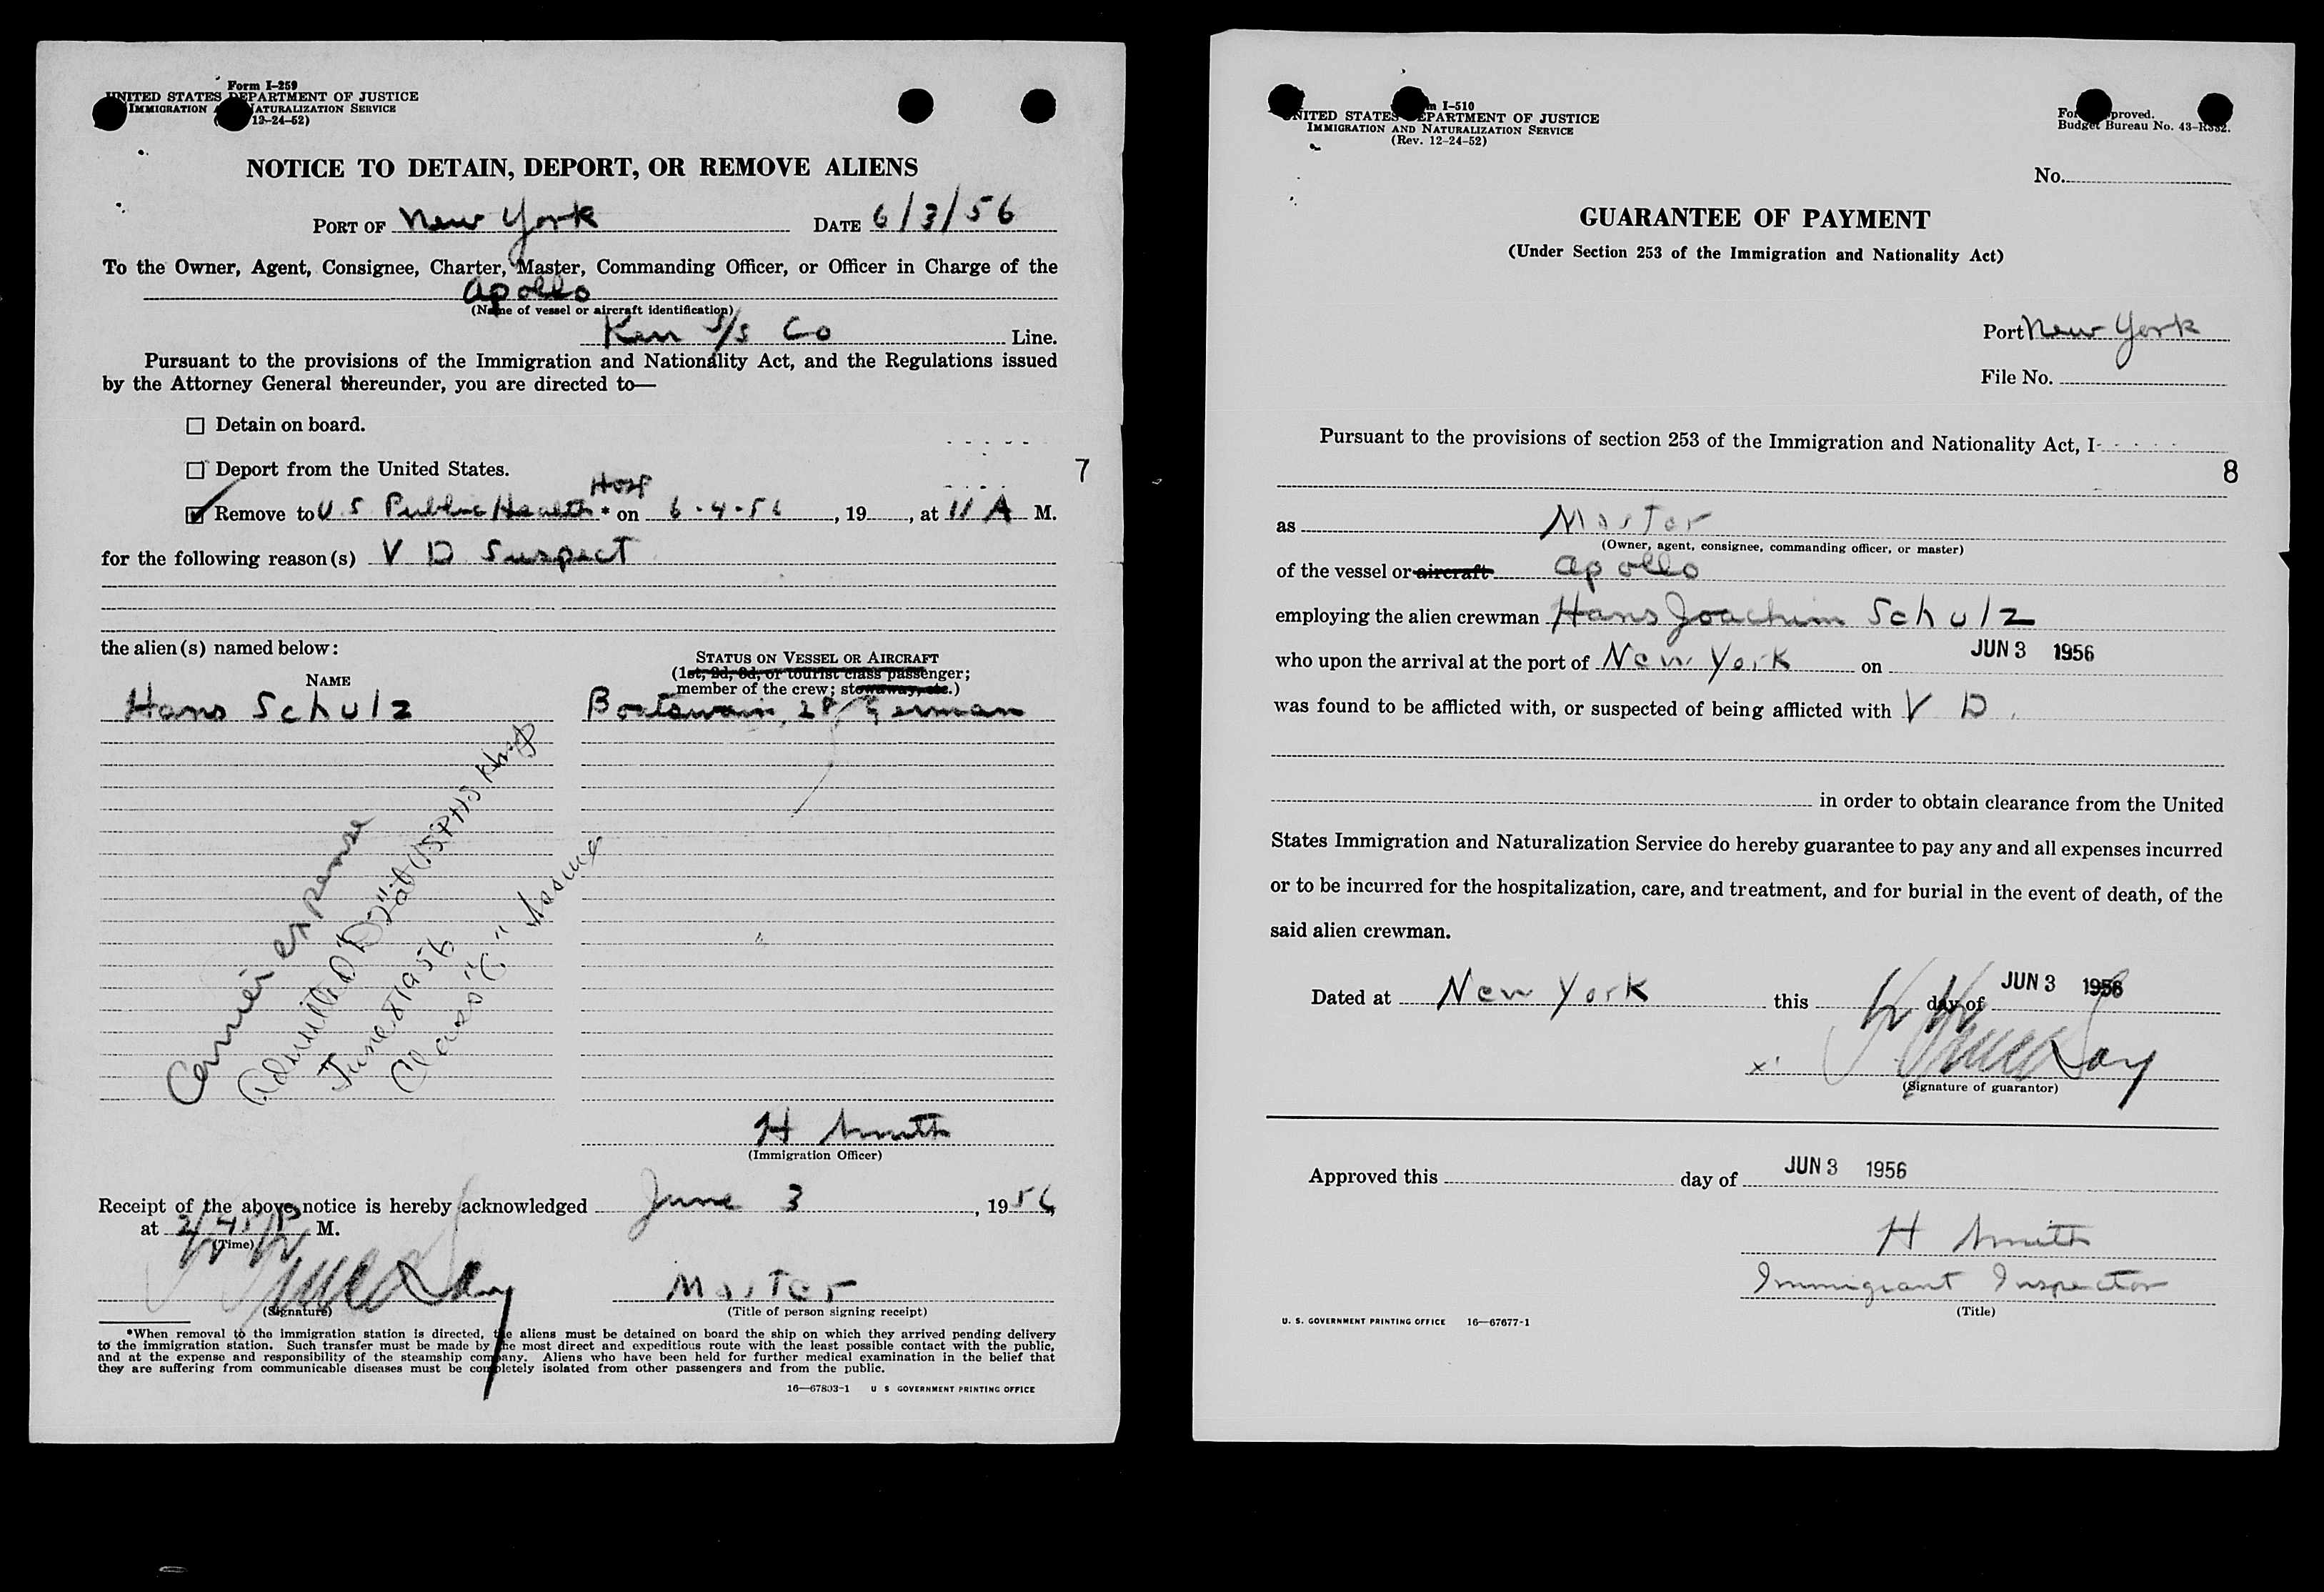 Form I-259
UNITED STATES DEPARTMENT OF JUSTICE
IMMIGRATION NATURALIZATION SERVICE
12-24-52)
NOTICE TO DETAIN, DEPORT, OR REMOVE ALIENS
PORT OF New York DATE 6/3/56
To the Owner, Agent, Consignee, Charter, Master, Commanding Officer, or Officer in Charge of the
Apollo
(Name of vessel or aircraft identification)
Ken S/S Co Line.
Pursuant to the provisions of the Immigration and Nationality Act, and the Regulations issued
by the Attorney General thereunder, you are directed to—
Detain on board.
Deport from the United States.
7
Hosp
Remove to U S Public Health * on 6-4-56, 19, at 11 A M.
for the following reason(s) V D Suspect
the alien(s) named below:
STATUS ON VESSEL OR AIRCRAFT
(1st, 2d, 3d, or tourist class passenger;
member of the crew; stowaway, etc.)
NAME
Hans Schulz Boatswain, 28, German
Carrier expense
Admitted "D-2" at USPHS Hosp
June 8 1956
Class "C" issued
H Smith
(Immigration Officer)
Receipt of the above notice is hereby acknowledged June 3, 1956,
at 2/45 P M.
(Time)
Master
(Signature) (Title of person signing receipt)
*When removal to the immigration station is directed, the aliens must be detained on board the ship on which they arrived pending delivery
to the immigration station. Such transfer must be made by the most direct and expeditious route with the least possible contact with the public,
and at the expense and responsibility of the steamship company. Aliens who have been held for further medical examination in the belief that
they are suffering from communicable diseases must be completely isolated from other passengers and from the public.
16—67803-1 U S GOVERNMENT PRINTING OFFICE
I-510
UNITED STATES DEPARTMENT OF JUSTICE
IMMIGRATION AND NATURALIZATION SERVICE
(Rev. 12-24-52)
Form approved.
Budget Bureau No. 43-R382.
No.
GUARANTEE OF PAYMENT
(Under Section 253 of the Immigration and Nationality Act)
Port New York
File No.
Pursuant to the provisions of section 253 of the Immigration and Nationality Act, I
8
as Master
(Owner, agent, consignee, commanding officer, or master)
of the vessel or aircraft Apollo
employing the alien crewman Hans Joachim Schulz
who upon the arrival at the port of New York on JUN 3 1956
was found to be afflicted with, or suspected of being afflicted with V D.
in order to obtain clearance from the United
States Immigration and Naturalization Service do hereby guarantee to pay any and all expenses incurred
or to be incurred for the hospitalization, care, and treatment, and for burial in the event of death, of the
said alien crewman.
Dated at New York this day of JUN 3 1956
x
(Signature of guarantor)
Approved this day of JUN 3 1956
H Smith
Immigrant Inspector
(Title)
U. S. GOVERNMENT PRINTING OFFICE 16—67677-1